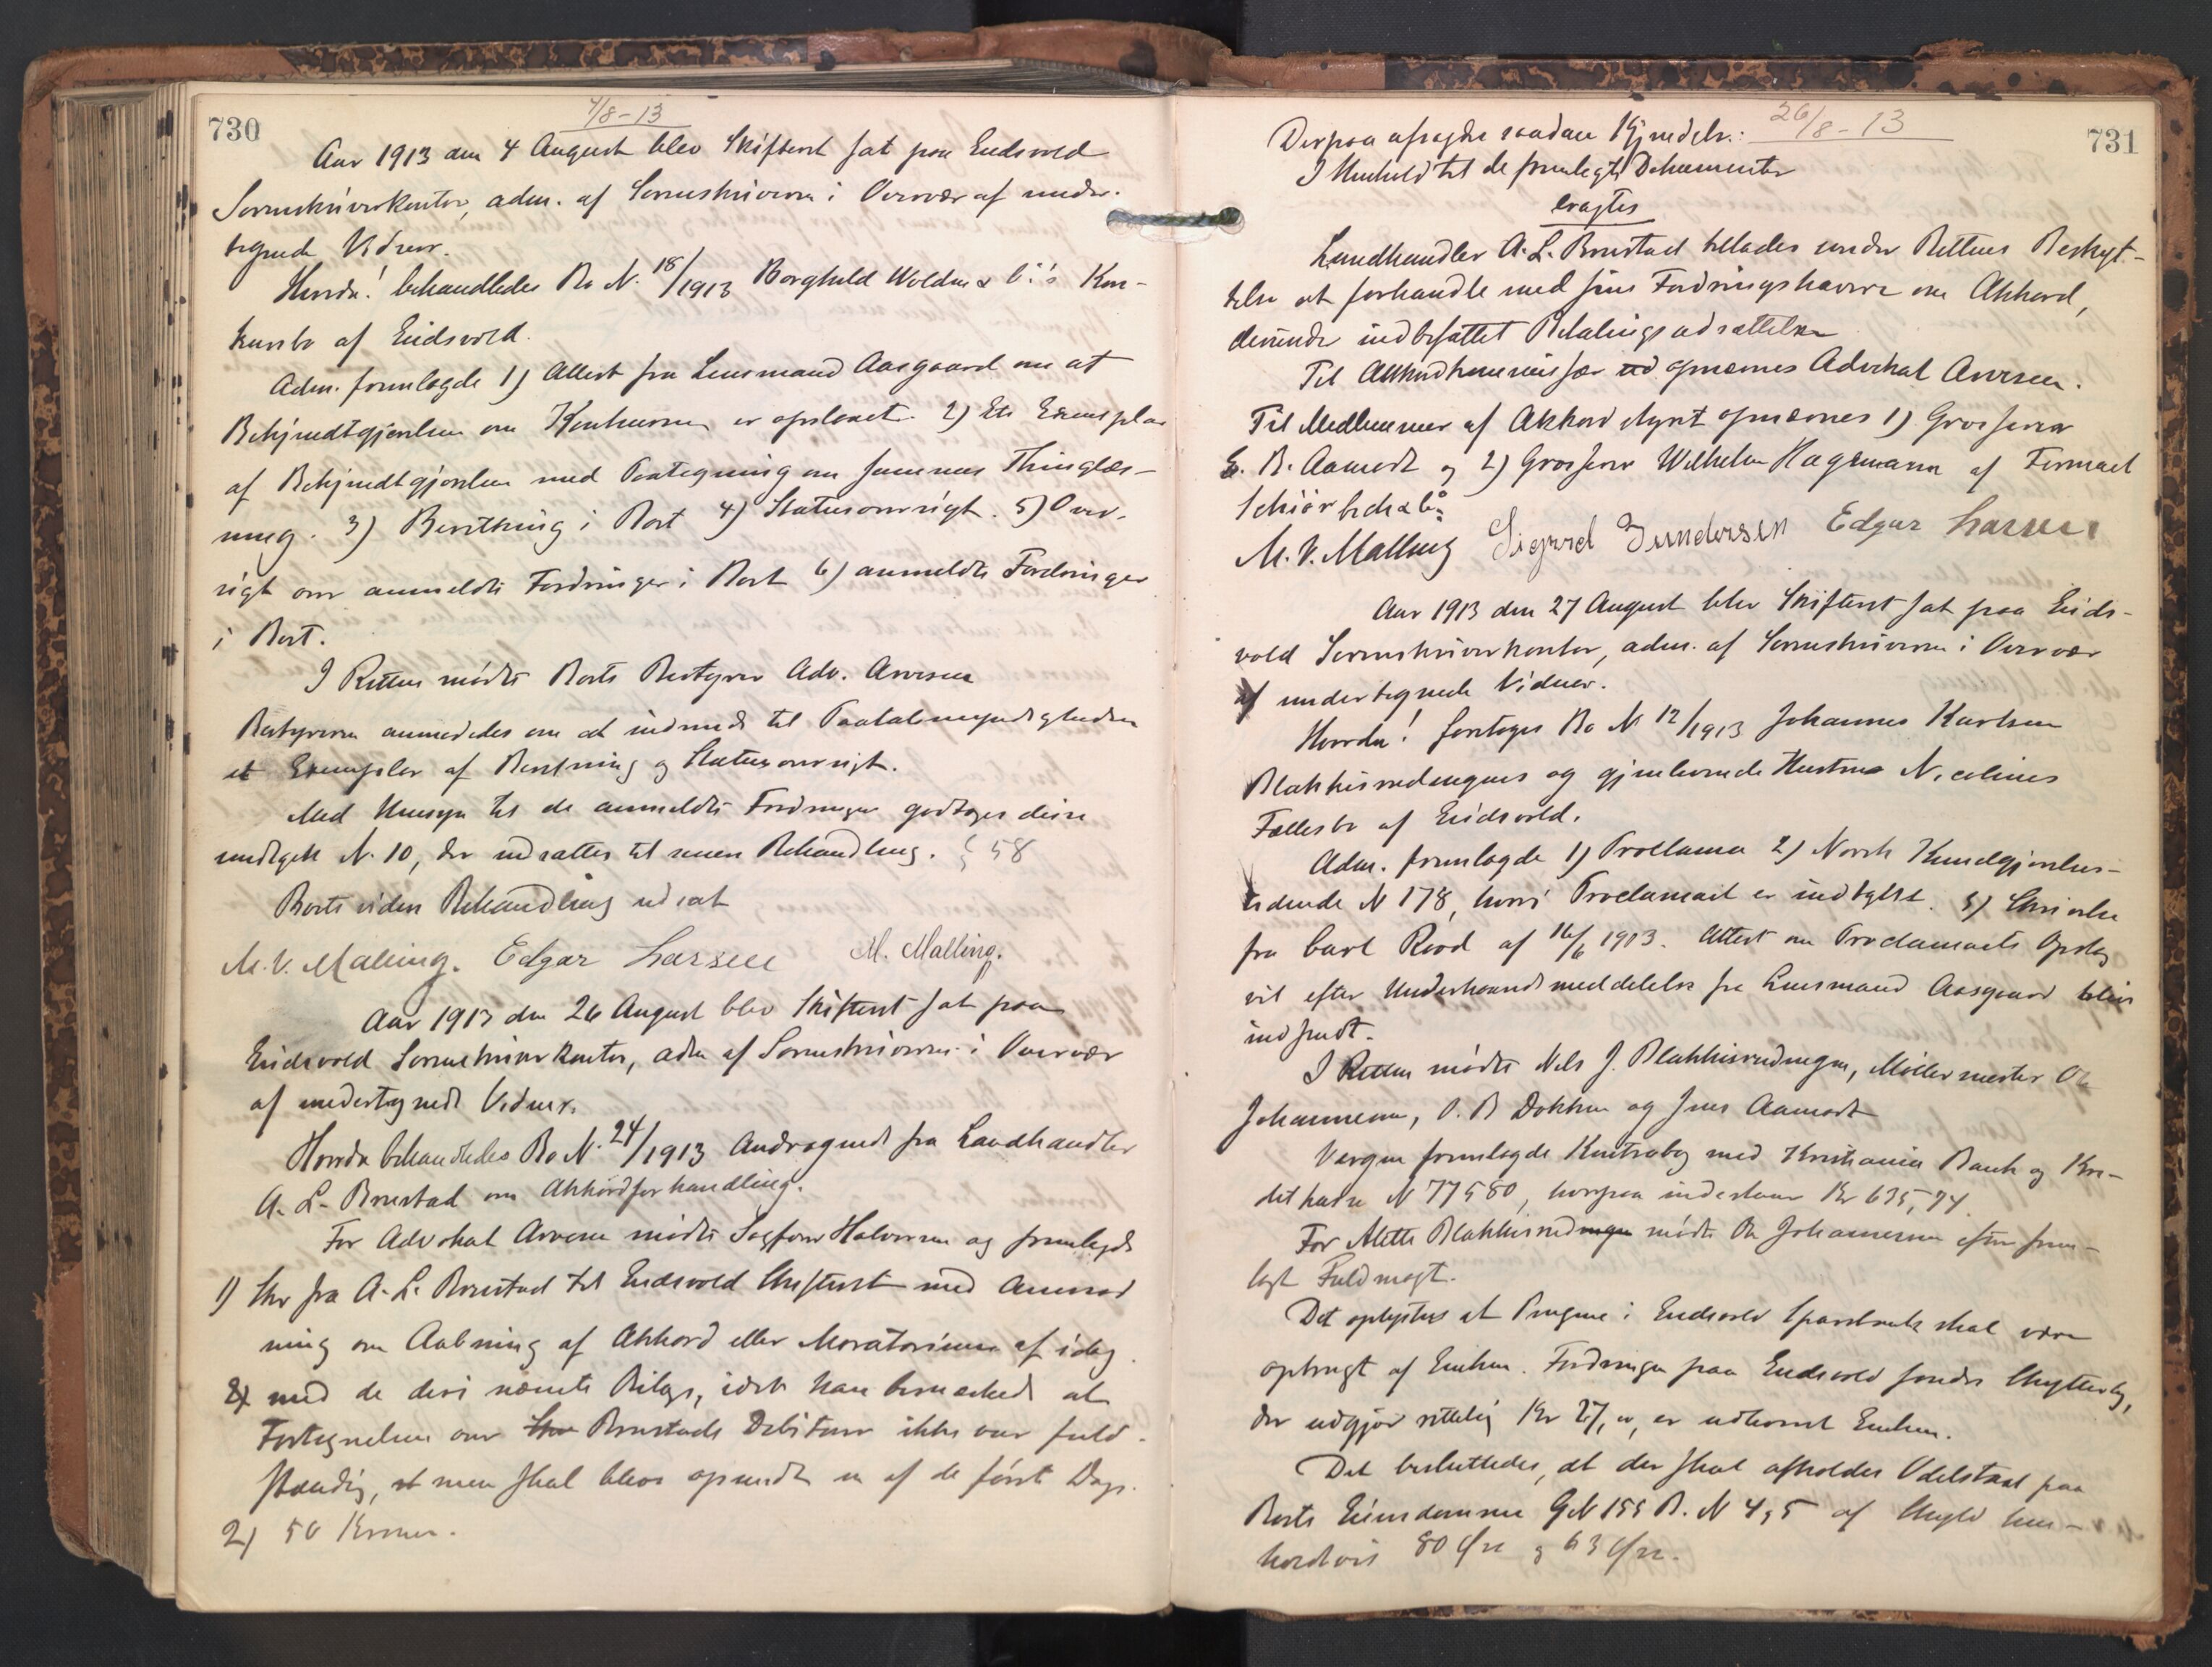 730
4/8-13
Aar 1913 den 4 August blev Skifteret sat paa Eidsvold
Sorenskriverkontor, adm. af Sorenskriveren i Overvær af under-
tegnede Vidner.
Hvorda! behandledes Bo N. 18/1913 Borghild Woldens & Co's Kon-
kursbo af Eidsvold.
Adm. fremlagde 1) Attest fra Lensmand Aasgaard om at
Bekjendtgjørelsen om Konkursen er opslaaet. 2) Et Exemplar
af Bekjendtgjørelsen med Paategning om sammes Thinglæs-
ning. 3) Beretning i Boet 4) Statusoversigt. 5) Over-
sigt over anmeldte Fordringer i Boet 6) anmeldte Fordringer
i Boet.
I Retten mødte Boets Bestyrer Adv. Arvesen
Bestyreren anmodedes om at indsende til Paatalemyndigheden
et Exemplar af Beretning og Statusoversigt.
Med Hensyn til de anmeldte Fordringer godtages disse
undtagen N. 10, der udsættes til senere Behandling. § 58
Boets videre Behandling udsat
M. V. Malling. Edgar Larsen M. Malling.
Aar 1913 den 26 August blev Skifteret sat paa
Eidsvold Sorenskriverkontor, adm af Sorenskriveren i Overvær
af undertegnede Vidner.
Hvorda behandledes Bo N. 24/1913 Andragende fra Landhandler
A. L. Brustad om Akkordforhandling.
For Advokat Arvesen mødte Sagfører Halvorsen og fremlagde
1) Skr fra A. L. Brustad til Eidsvold Skifteret med Anmod
ning om Aabning af Akkord eller Moratorium af idag
2) med de deri nævnte Bilag, idet han bemærkede at
Fortegnelsen over Brustads Debitorer ikke var fuld-
stændig, men skal blive opsendt en af de første Dage.
2) 50 Kroner.
26/8-13
731
Derpaa afsagdes saadan Kjendelse:
I Henhold til de fremlagte Dokumenter
eragtes
Landhandler A. L. Brustad tillades under Rettens Beskyt-
telse at forhandle med sine Fordringshavere om Akkord,
derunder indbefattet Betalingsudsættelse
Til Akkordkommissær opnævnes Advokat Arvesen.
Til Medlemmer af Akkordstyret opnævnes 1) Grosserer
E. B. Aamodt og 2) Grosserer Wilhelm Hagemann af Firmaet
Schiørbeck & Co.
M. V. Malling Sigurd Gundersen Edgar Larsen
Aar 1913 den 27 August blev Skifteret sat paa Eids-
vold Sorenskriverkontor, adm. af Sorenskriveren i Overvær
af undertegnede Vidner.
Hvorda! foretoges Bo N 12/1913 Johannes Karlsen
Blakkisrudengens og gjenlevende Hustru Nicolines
Fællesbo af Eidsvold.
Adm. fremlagde 1) Proclama 2) Norsk Kundgjørelses-
tidende N 178, hvori Proclamaet er indtaget. 3) Skrivelse
fra Carl Rood af 16/6 1913. Attest om Proclamaets Opslag
vil efter Underhaandsmeddelelse fra Lensmand Aasgaard blive
indsendt.
I Retten mødte Nels J. Blakkisrudengen, Møllermester Ole
Johannesen, O. B Dokken og Jens Aamodt
Værgen fremlagde Kontrabog med Kristiania Bank og Kre-
ditkasse N 77580, hvorpaa indestaar Kr 635,74.
For Alette Blakkisrudengen mødte Ole Johannesen efter frem-
lagt Fuldmagt.
Det oplystes at Pengene i Eidsvold Sparebank skal være
opbrugt af Enken. Fordringen paa Eidsvold søndre Skytterlag,
der udgjør rettelig Kr 27,00, er udbetalt Enken.
Det besluttedes, at der skal afholdes Odelstaxt paa
Boets Eiendomme G.N 155 B. N 4, 5 af Skyld hen-
holdvis 80 Øre og 63 Øre.